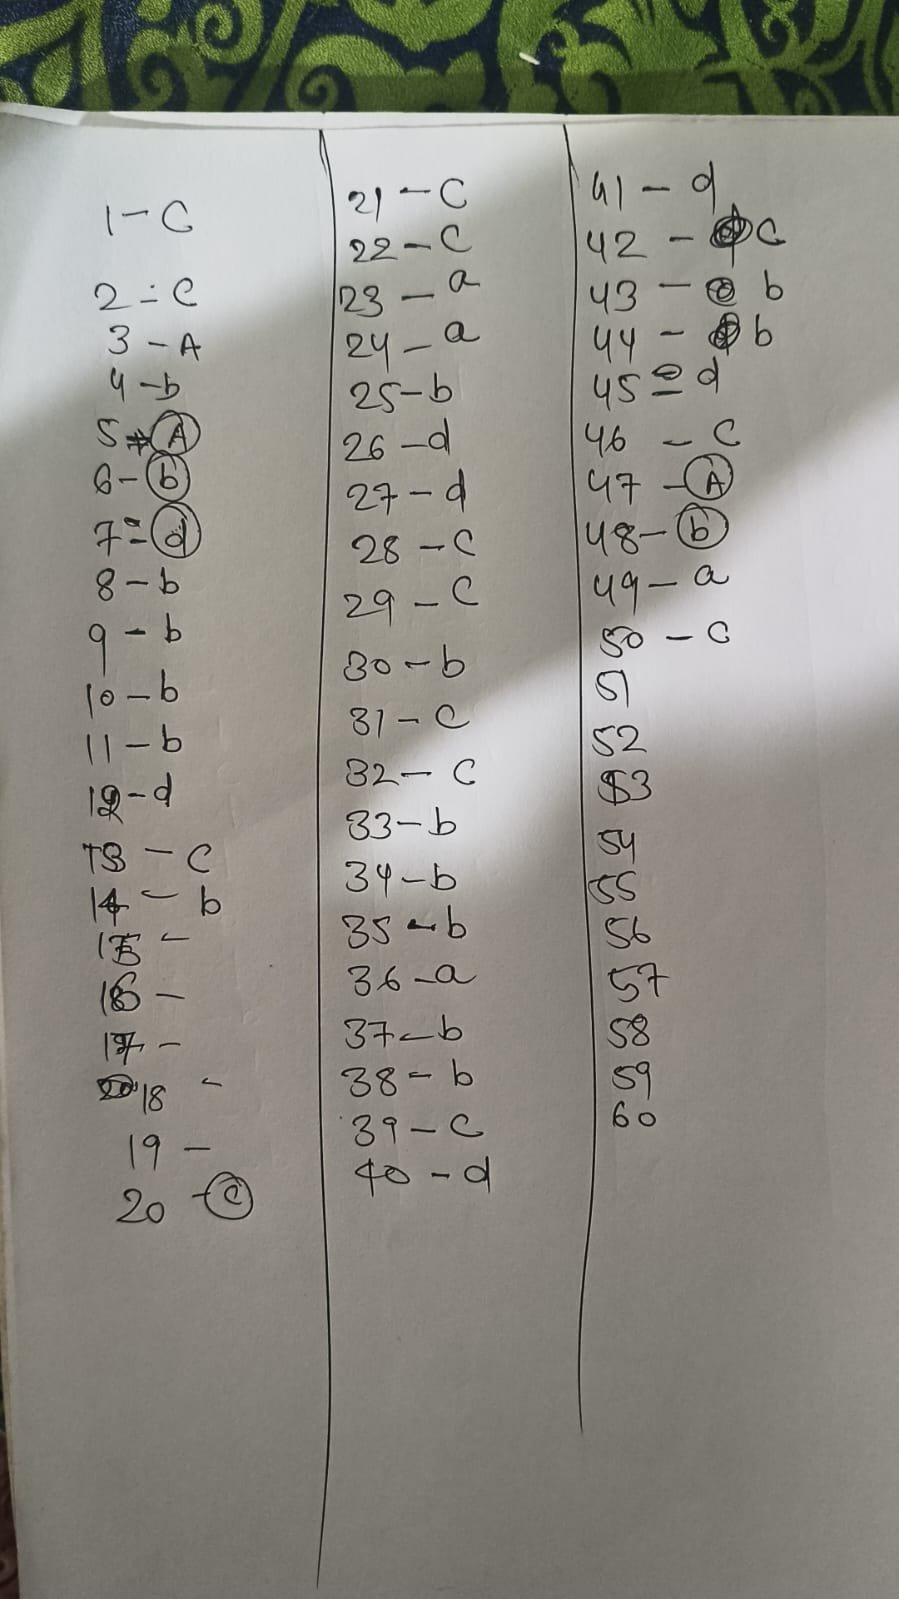 1 - C
2 - C
3 - A
4 - b
5 - A
6 - b
7 - d
8 - b
9 - b
10 - b
11 - b
12 - d
13 - C
14 - b
15 -
16 -
17 -
18 -
19 -
20 - C
21 - C
22 - C
23 - a
24 - a
25 - b
26 - d
27 - d
28 - C
29 - C
30 - b
31 - C
32 - C
33 - b
34 - b
35 - b
36 - a
37 - b
38 - b
39 - C
40 - d
41 - d
42 - C
43 - b
44 - b
45 = d
46 - C
47 - A
48 - b
49 - a
50 - C
51
52
53
54
55
56
57
58
59
60